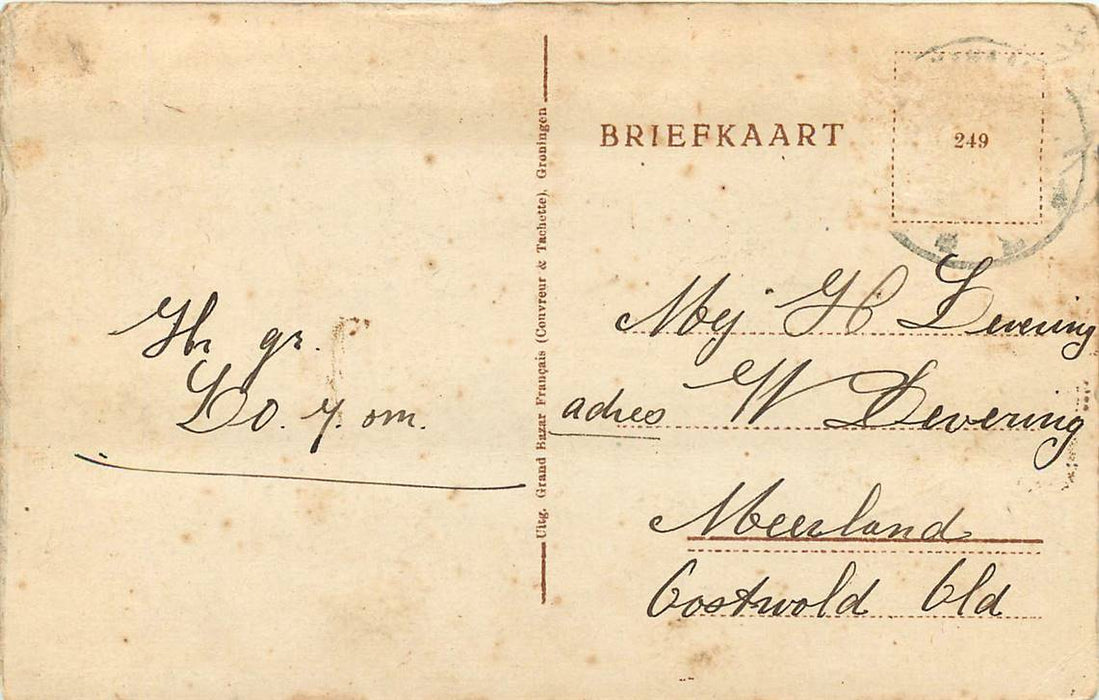 BRIEFKAART
249
Uitg. Grand Bazar Français (Couvreur & Tachette), Groningen
Hr gr.
Do. y. om.
Mej H Devering
adres W Devering
Meerland
Oostwold Old